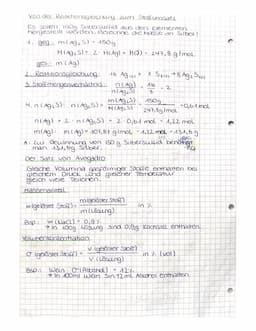 Von der Reaktionsgleichung zum Stoffumsatz
Es sollen 150g Silbersulfid aus den Elementen
hergestellt werden. Berechne die Masse an Silber!
1. geg.: m(Ag₂S) = 150g
M(Ag₂S) = 2 · M(Ag) + M(S) = 247,8 g/mol
ges.: m(Ag)
2. Reaktionsgleichung: 16 Ag(s) + 1 S₈(s) → 8 Ag₂S(s)
3. Stoffmengenverhältnis: n(Ag) / n(Ag₂S) = 16 / 8 = 2
4. n(Ag₂S): n(Ag₂S) = m(Ag₂S) / M(Ag₂S) = 150g / 247,8g/mol = 0,61 mol
n(Ag) = 2 · n(Ag₂S) = 2 · 0,61 mol = 1,22 mol
m(Ag): m(Ag) = 107,87 g/mol · 1,22 mol = 131,6 g
A: Zur Gewinnung von 150 g Silbersulfid benötigt
man 131,6g Silber.
Der Satz von Avogadro
Gleiche Volumina gasförmiger Stoffe enthalten bei
gleichem Druck und gleicher Temperatur
gleich viele Teilchen.
Massenanteil
w(gelöster Stoff) = m(gelöster Stoff) / m(Lösung) in %
Bsp.: w(NaCl) = 0,9%
→ in 100g Lösung sind 0,9g Kochsalz enthalten.
Volumenkonzentration
σ(gelöster Stoff) = V(gelöster Stoff) / V(Lösung) in % (vol)
Bsp.: Wein σ(Ethanol) = 12%
→ in 100ml Wein sind 12mL Alkohol enthalten